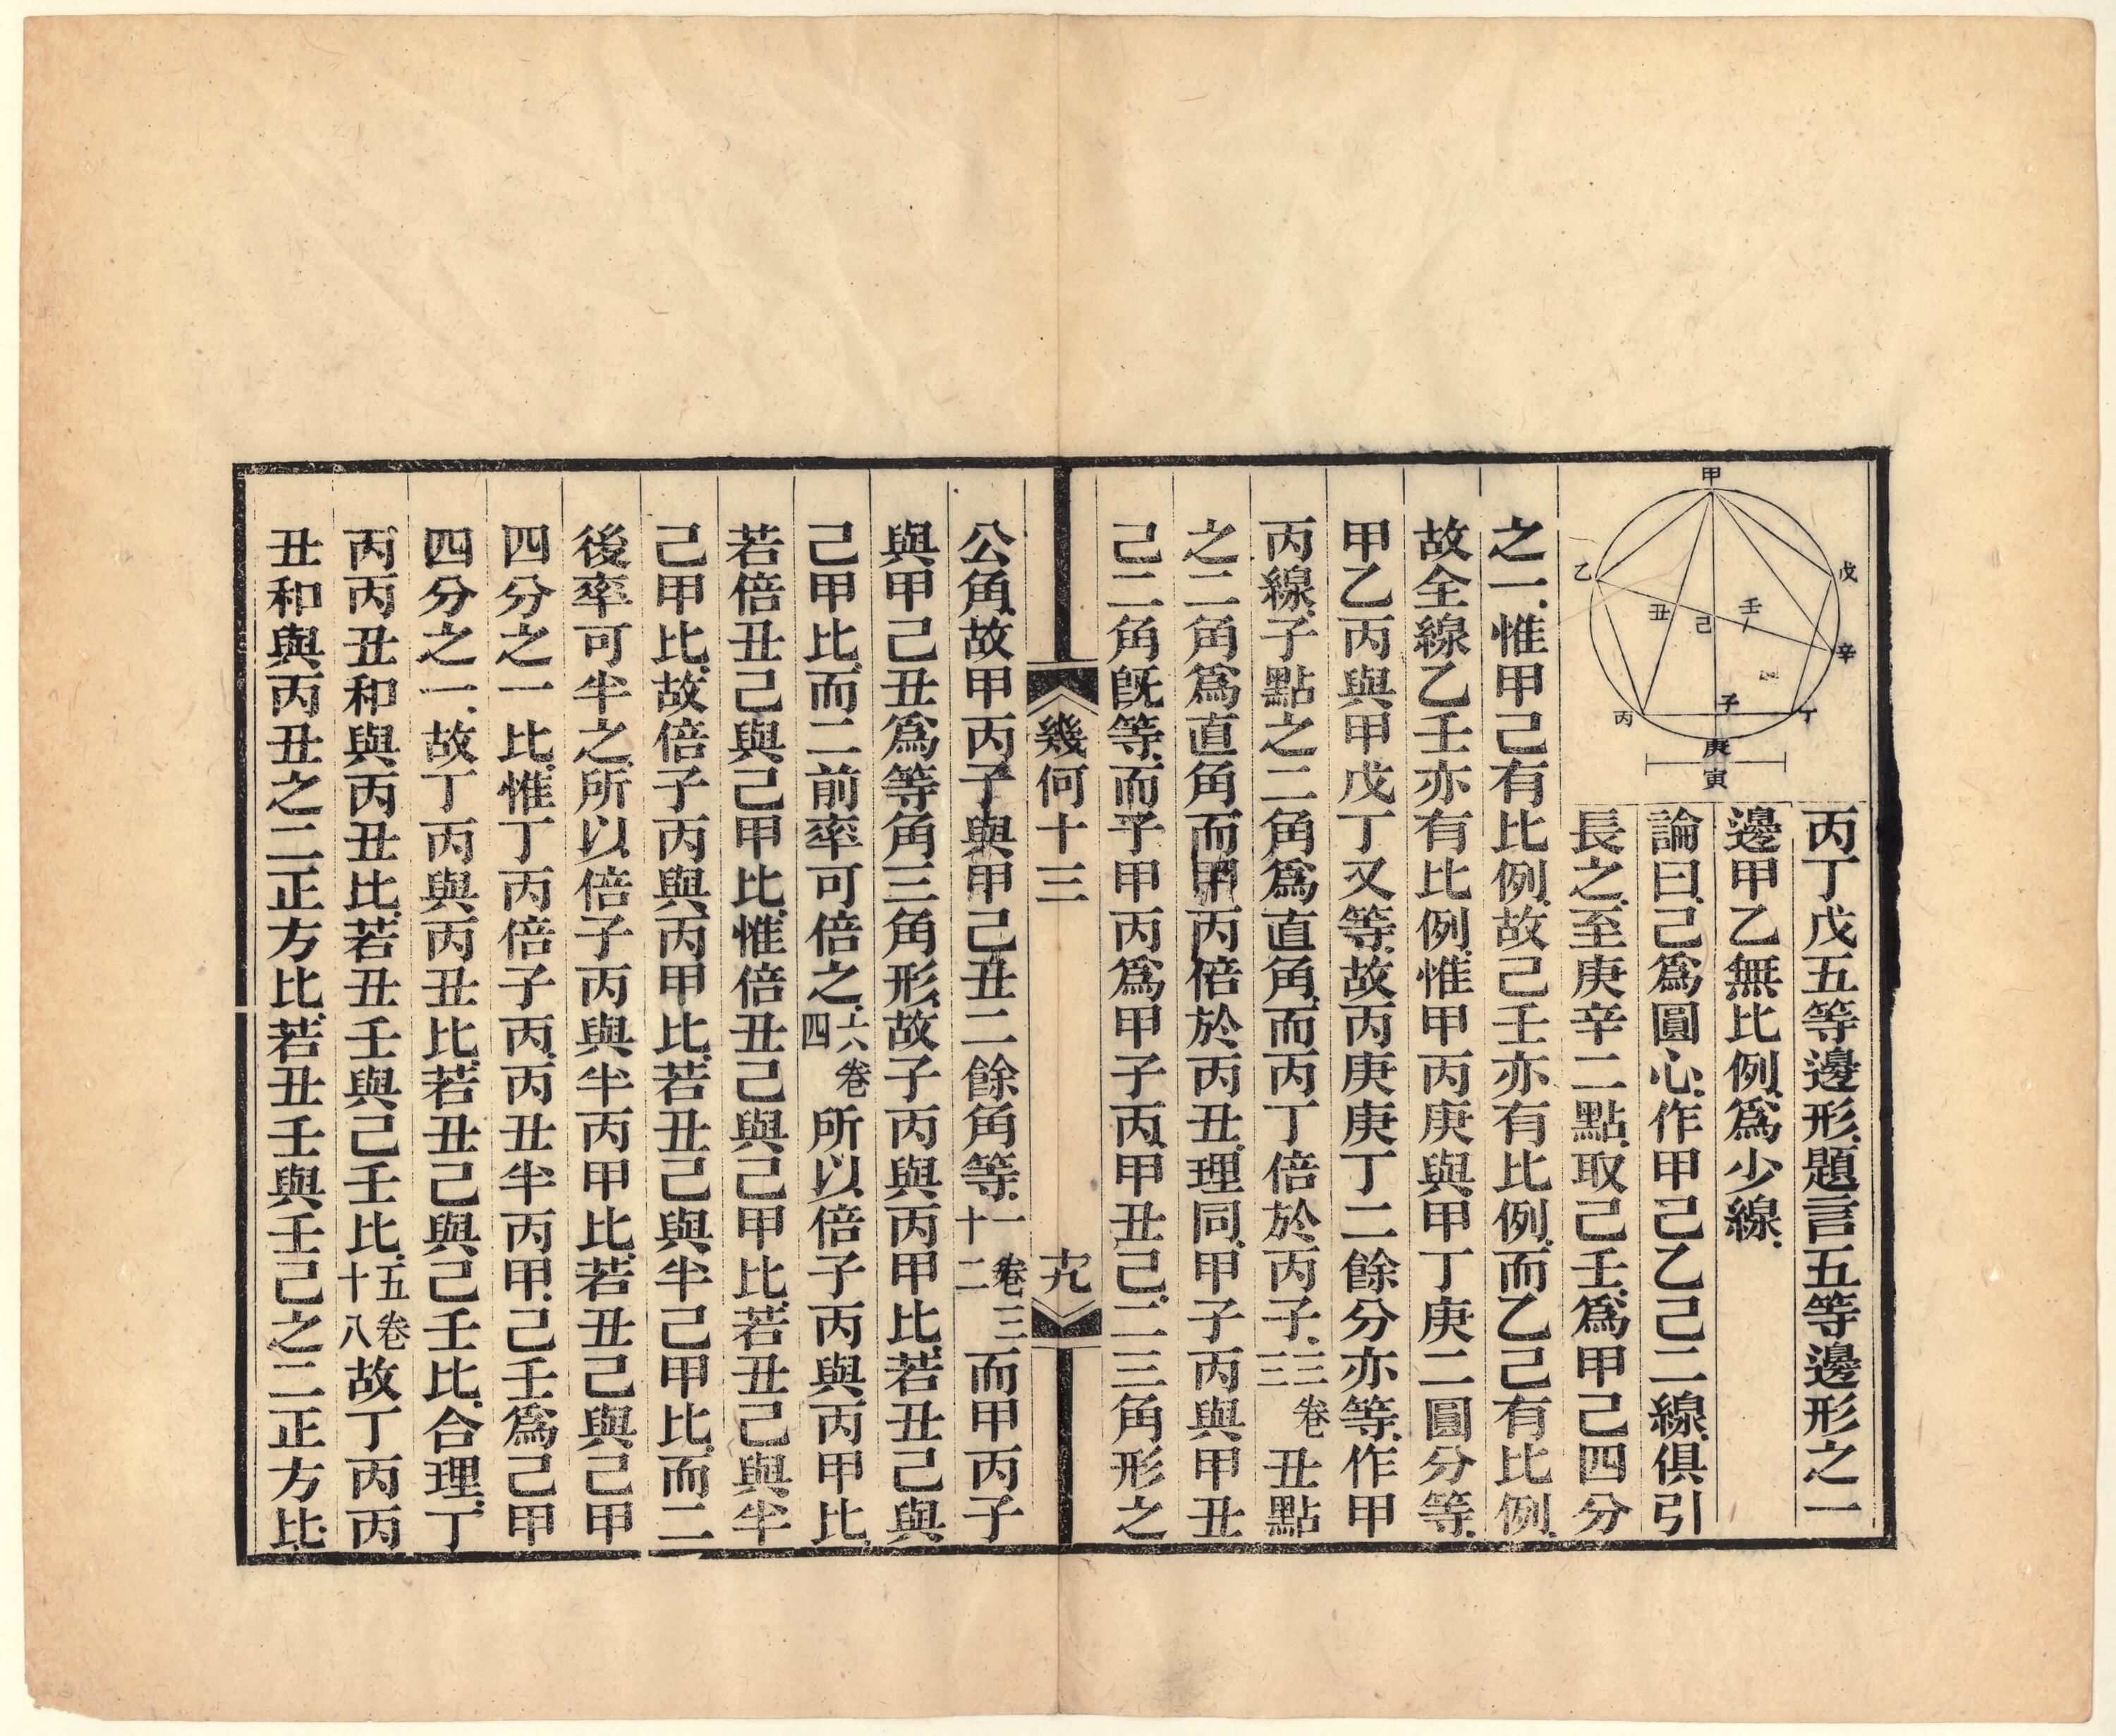 甲
乙
丑
己
壬
戊
辛
子
丙
丁
庚
寅
丙丁戊五等邊形.題言五等邊形之一
邊甲乙無比例.爲少線.
論曰.己爲圓心.作甲己乙己二線.俱引
長之.至庚辛二點.取己壬.爲甲己四分
之一.惟甲己有比例.故己壬亦有比例.而乙己有比例.
故全線乙壬亦有比例.惟甲丙庚與甲丁庚二圓分等.
甲乙丙與甲戊丁又等.故丙庚庚丁二餘分亦等.作甲
丙線.子點之二角爲直角.而丙丁倍於丙子.三卷三丑點
之二角爲直角.而甲丙倍於丙丑.理同.甲子丙與甲丑
己二角旣等.而子甲丙爲甲子丙.甲丑己.二三角形之
幾何十三
十九
公角.故甲丙子與甲己丑二餘角等.一卷三十二而甲丙子
與甲己丑爲等角三角形.故子丙與丙甲比.若丑己與
己甲比.而二前率可倍之.六卷四所以倍子丙與丙甲比.
若倍丑己與己甲比.惟倍丑己與己甲比.若丑己與半
己甲比.故倍子丙與丙甲比.若丑己與半己甲比.而二
後率可半之.所以倍子丙與半丙甲比.若丑己與己甲
四分之一比.惟丁丙倍子丙.丙丑半丙甲.己壬爲己甲
四分之一.故丁丙與丙丑比.若丑己與己壬比.合理.丁
丙丙丑和與丙丑比.若丑壬與己壬比.五卷十八故丁丙丙
丑和與丙丑之二正方比.若丑壬與壬己之二正方比.